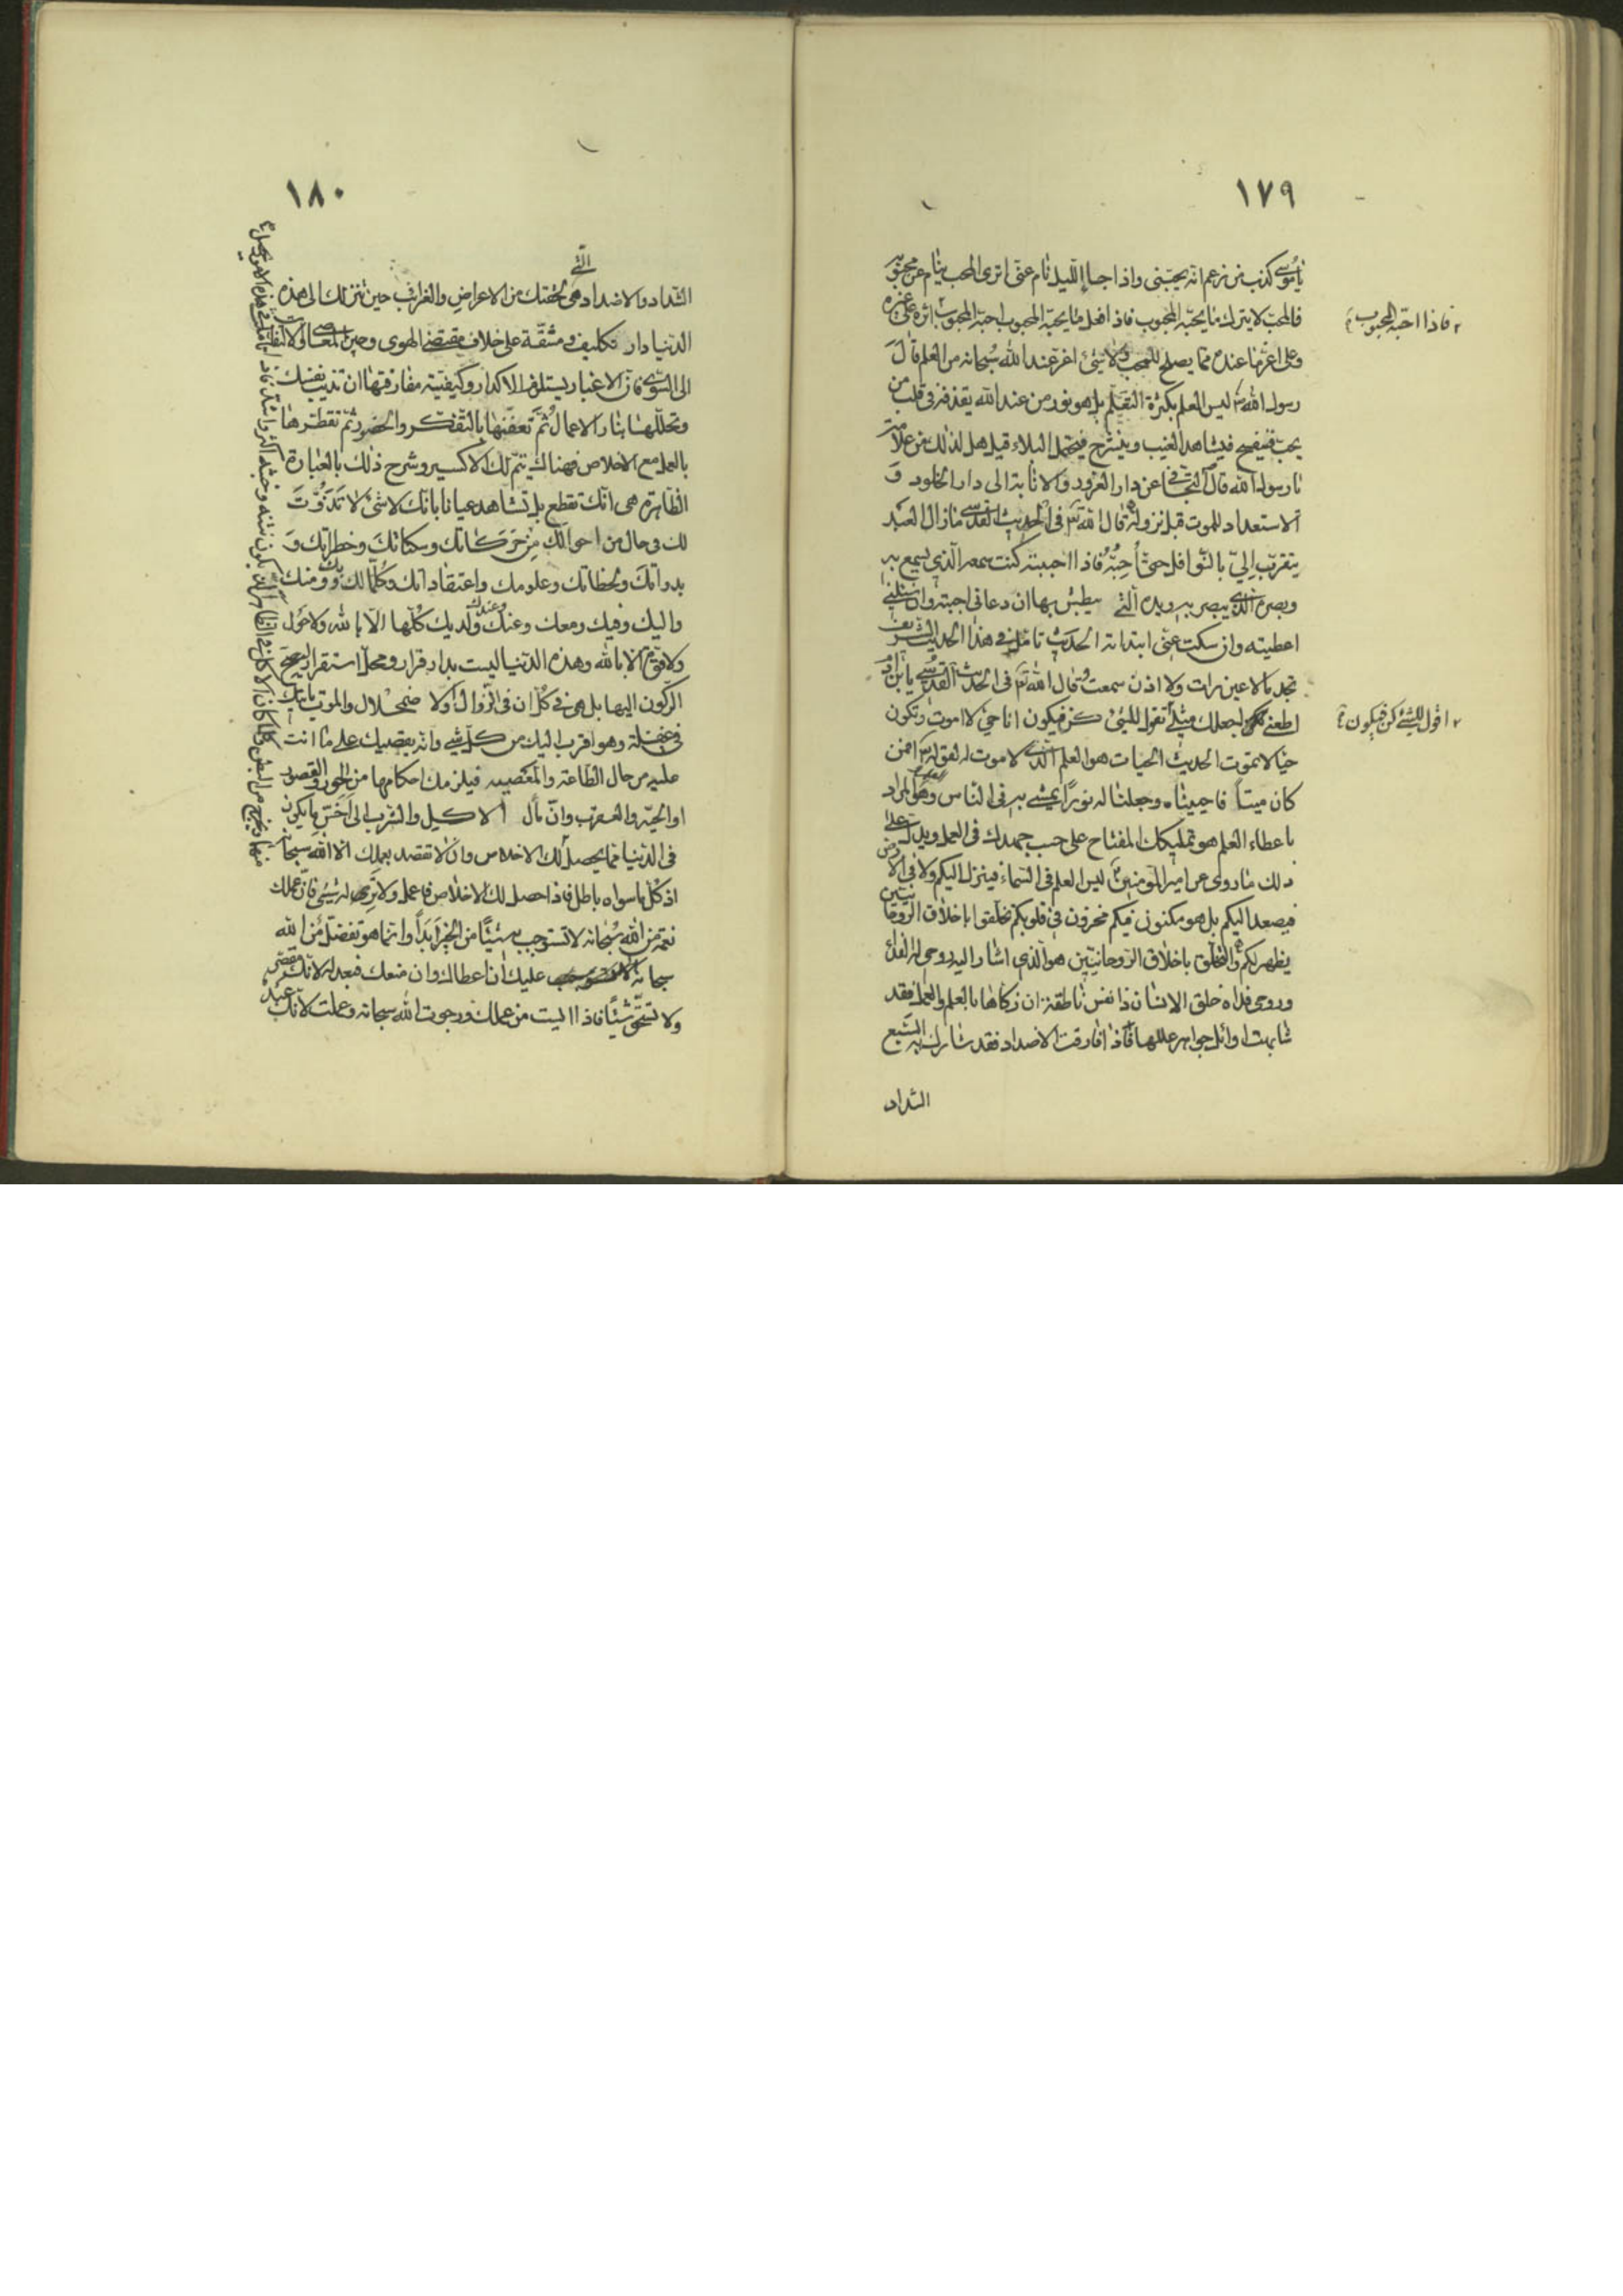 ١٧٩
يا موسى كذب من زعم انه يحبني واذا جاء الليل نام عني اترى المحب ينام عن محبوبه
فالمحب لا يترك ما يحبه المحبوب فاذا فعل ما يحبه المحبوب احبه المحبوب اثره على غيره
فاذا احبه المحبوب
وعلى اعزها عنده مما يصلح للمحب ولا شيء اعز عند الله سبحانه من العلم قال
رسول الله ص ليس العلم بكثرة التعلم بل هو نور من عند الله يقذفه في قلب من
يحب فينفسح فيشاهد الغيب وينشرح فيحتمل البلاء قيل هل لذلك من علامة
يا رسول الله قال التجافي عن دار الغرور والانابة الى دار الخلود و
الاستعداد للموت قبل نزوله قال الله تع في الحديث القدسي ما زال العبد
يتقرب الي بالنوافل حتى أحبه فاذا احببته كنت سمعه الذي يسمع به
وبصره الذي يبصر به ويده التي يبطش بها ان دعاني اجبته وان سئلني
اعطيته وان سكت عني ابتداته الحديث تامل في هذا الحديث الشريف
تجد ما لا عين رات ولا اذن سمعت وقال الله تع في الحديث القدسي يا بن آدم
اطعني اجعلك مثلي تقول للشيء كن فيكون انا حي لا اموت وتكون
اقول للشيء كن فيكون
حيا لا تموت الحديث الحيات هو العلم الذي لا موت له لقوله تع افمن
كان ميتاً فاحييناه وجعلنا له نوراً يمشي به في الناس وهو المراد
باعطاء العلم هو تمليكك المفتاح على حسب جهدك في العمل ويدل على
ذلك ما روى عن امير المؤمنين ع ليس العلم في السماء فينزل اليكم ولا في الارض
فيصعد اليكم بل هو مكنون فيكم مخزون في قلوبكم تخلقوا باخلاق الروحانيين
يظهر لكم والتخلق باخلاق الروحانيين هو الذي اشار اليه روحي له الفداء
وروحي فداه خلق الانسان ذا نفس ناطقة ان زكاها بالعلم والعمل فقد
شابهت اوائل جواهر عللها فاذا فارقت الاضداد فقد شارك به السبع
الشداد
١٨٠
التي
الشداد والاضداد هي لحقتك من الاعراض والغرائب حين تنزلك الى هذه
الدنيا دار تكليف ومشقة على خلاف مقتضى الهوى وحين المعاصي الالتفات
الى السوى فان الاغيار يستلزم الاكدار وكيفية مفارقتها ان تذيب نفسك
وتحللها بنار الاعمال ثم تعفنها بالتفكر والحضور ثم تقطرها
بالعمل مع الاخلاص فهناك يتم لك الاكسير وشرح ذلك بالعبارة
الظاهرة هي انك تقطع بل تشاهد عيانا بانك لا شيء لا تذوت
لك في حال من احوالك من حركاتك وسكناتك وخطراتك و
بدواتك ولحظاتك وعلومك واعتقاداتك وكلما لك وبك ومنك
واليك وفيك ومعك وعنك وعندك ولديك كلها الا بالله ولا حول
ولا قوة الا بالله وهذه الدنيا ليست بدار قرار ومحل استقرار ليصح
الركون اليها بل هي في كل ان في الزوال والاضمحلال والموت ياتيك
في غفلة وهو اقرب اليك من كل شيء وانه يقضيك على ما انت
عليه من حال الطاعة والمعصية فيلزمك احكامها من الحور والقصور
او الحية والعقرب وان مآل الاكل والشرب الى اخس ما يكون
في الدنيا مما يحصل لك الاخلاص وان لا تقصد بعملك الا الله سبحانه
اذ كل ما سواه باطل فاذا حصل لك الاخلاص فاعمل ولا ترى له شيئ فان عملك
نعمة من الله سبحانه لا تستوجب به شيئًا من الخير ابداً وانما هو تفضل من الله
سبحانه عليك ان اعطاك وان منعك فبعدله لانك مقصر
ولا تستحق شيئًا فاذا ايست من عملك ورجوت الله سبحانه وعملت لانك عبد